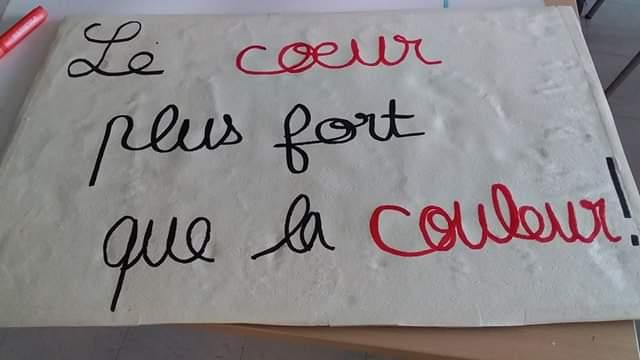 Le coeur
plus fort
que la couleur!